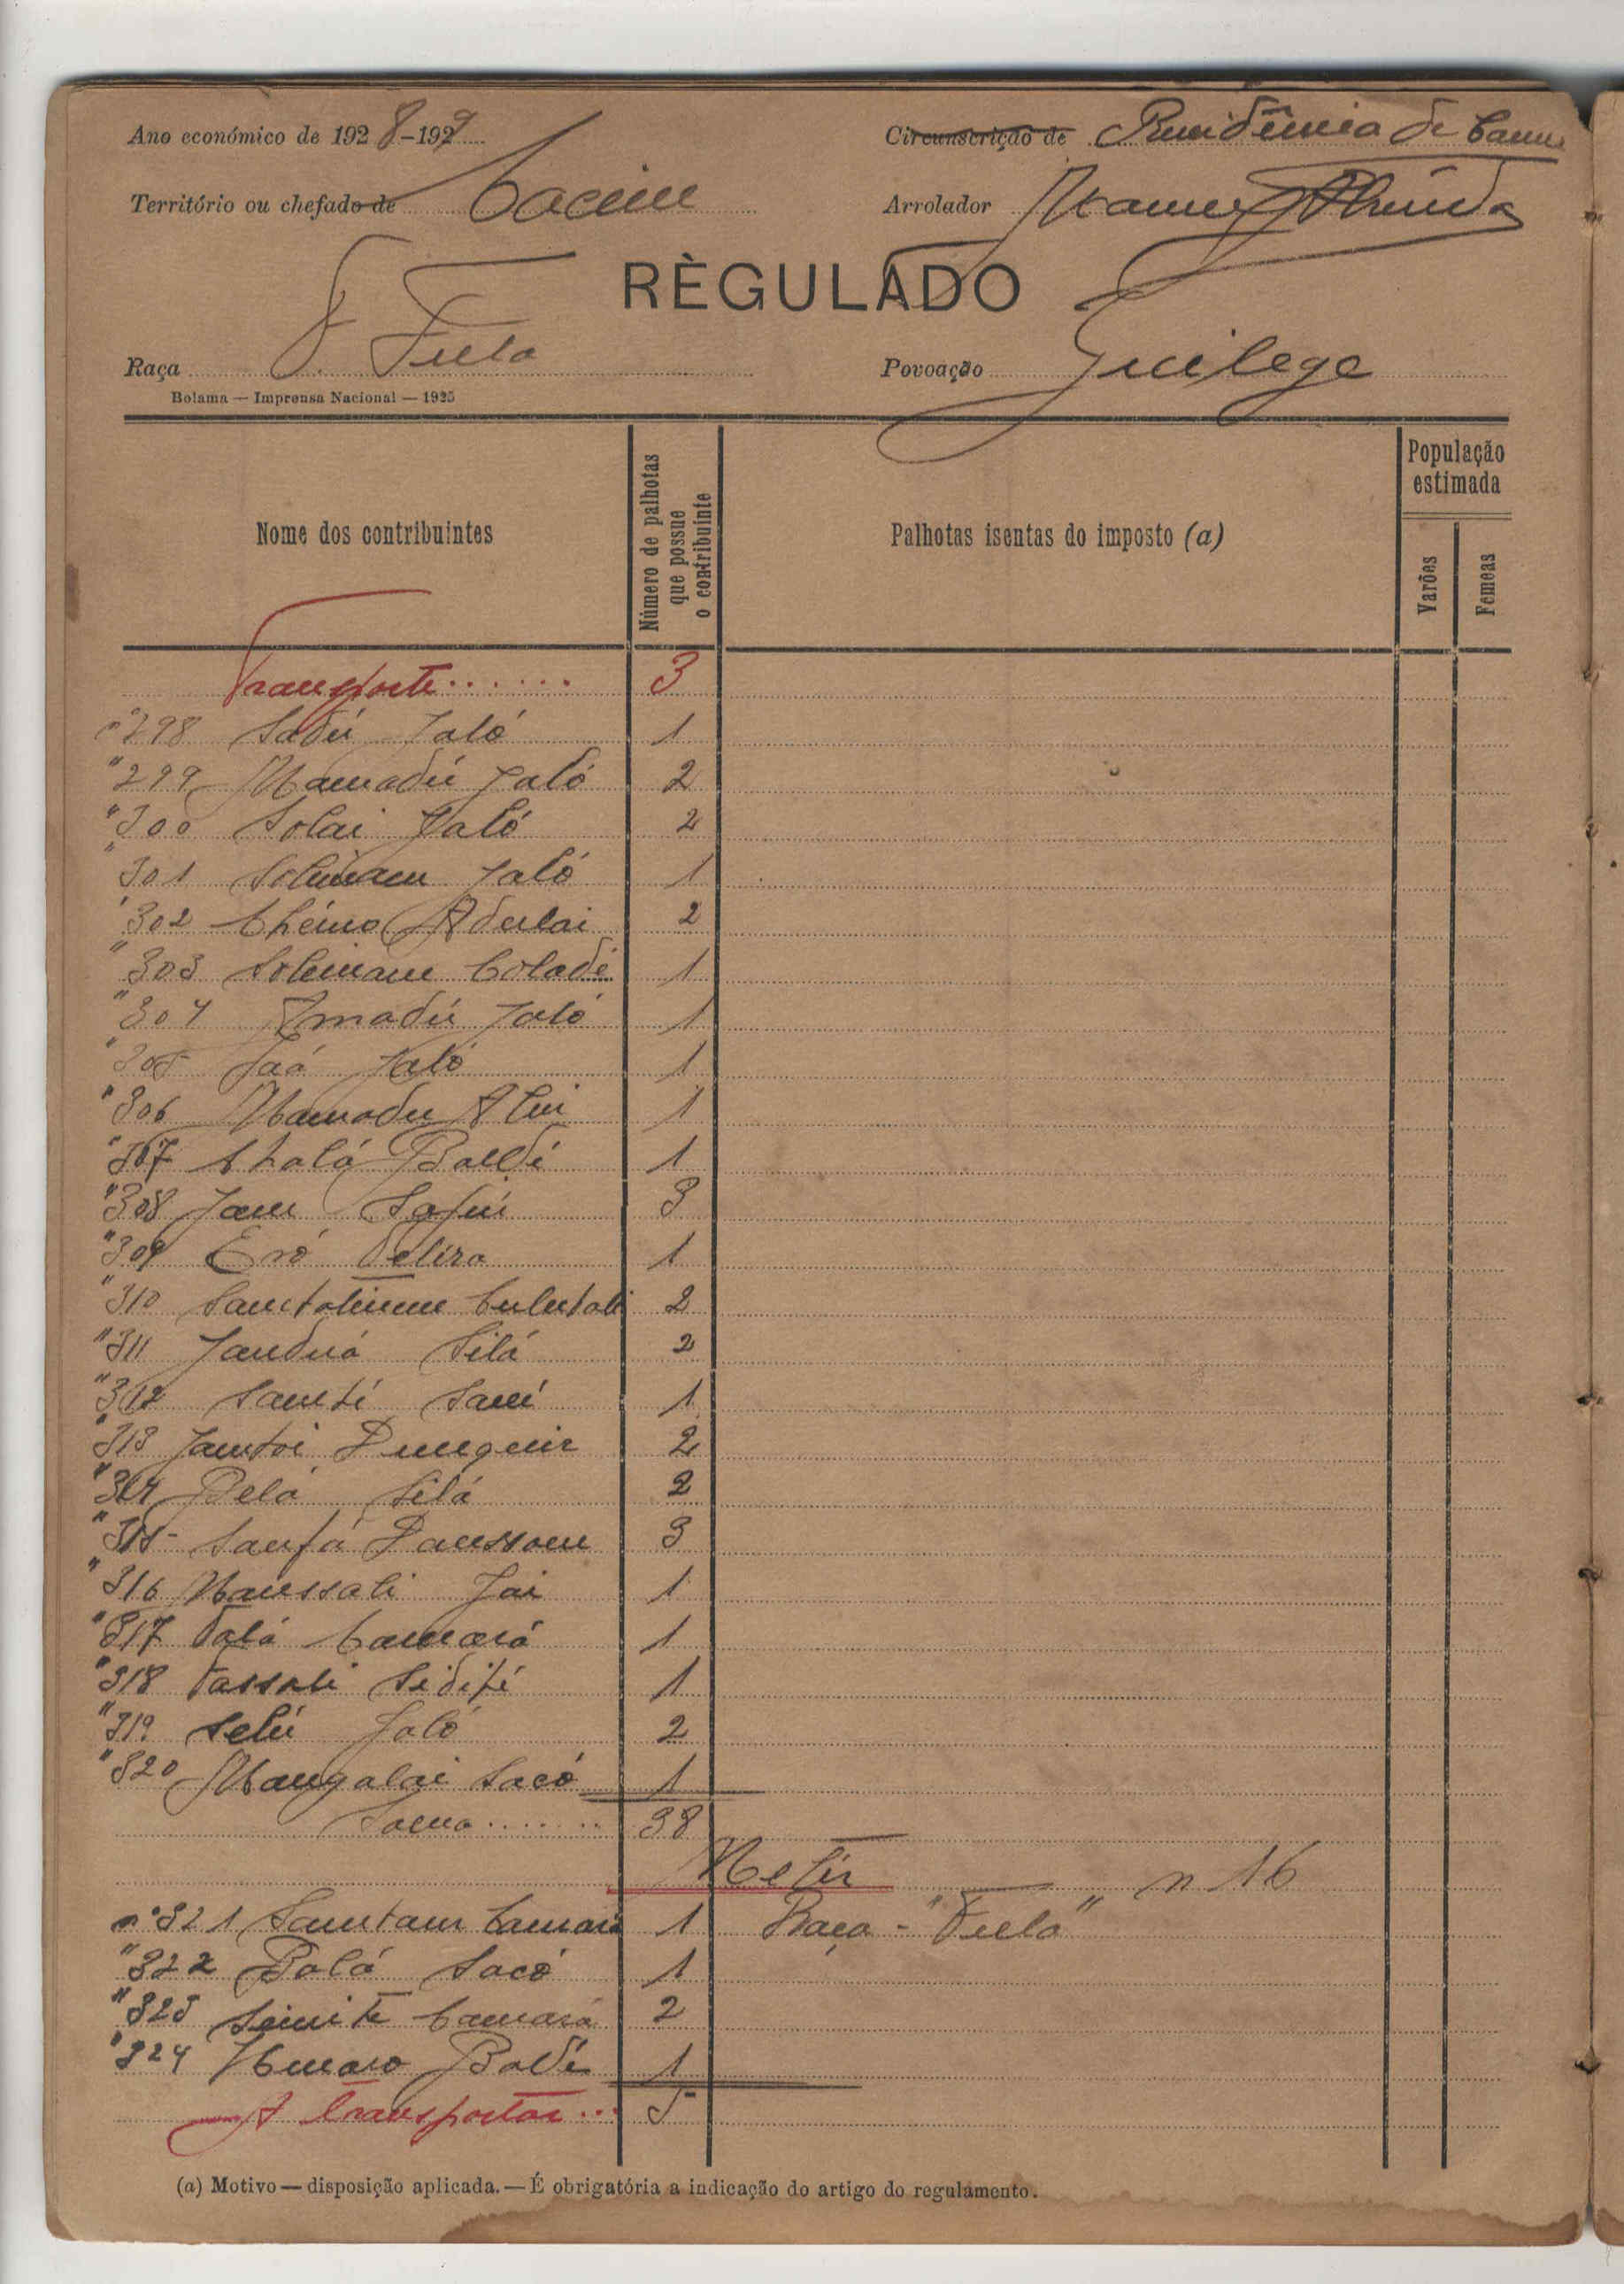 Ano económico de 1928-1929
Circunscrição de Residência de
Território ou chefado de Cacine
Arrolador Manuel Almeida
RÈGULADO
Raça F. Fula
Povoação Guilege
Bolama — Imprensa Nacional — 1925
Nome dos contribuintes
Número de palhotas que possue o contribuinte
Palhotas isentas do imposto (a)
População estimada
Varões
Fêmeas
Transporte...... 3
nº 298 Sadú Jaló 1
" 299 Mamadú Jaló 2
" 300 Solai Jaló 2
" 301 Solimam Jaló 1
" 302 Chérno Adulai 2
" 303 Solimane Coladé 1
" 304 Amadú Jaló 1
" 305 Jaá Jaló 1
" 306 Mamadu Alui 1
" 307 Baldé 1
" 308 Jam 3
" 309 1
" 310 2
" 311 Janduá Silá 2
" 312 Samti Samí 1
" 313 Jamtoi 2
" 314 Belá Silá 2
" 315 Sanfá Danssom 3
" 316 Manssali Jai 1
" 317 Talá Camará 1
" 318 Tassali Sidifé 1
" 319 Selú Jaló 2
" 320 Mangalai Sacó 1
Soma....... 38
n 16
nº 321 Camará 1 Raça - "Fula"
" 322 Balá Sacó 1
" 323 Camará 2
" 324 Umaro Baldé 1
A transportar... 5
(a) Motivo — disposição aplicada. — É obrigatória a indicação do artigo do regulamento.